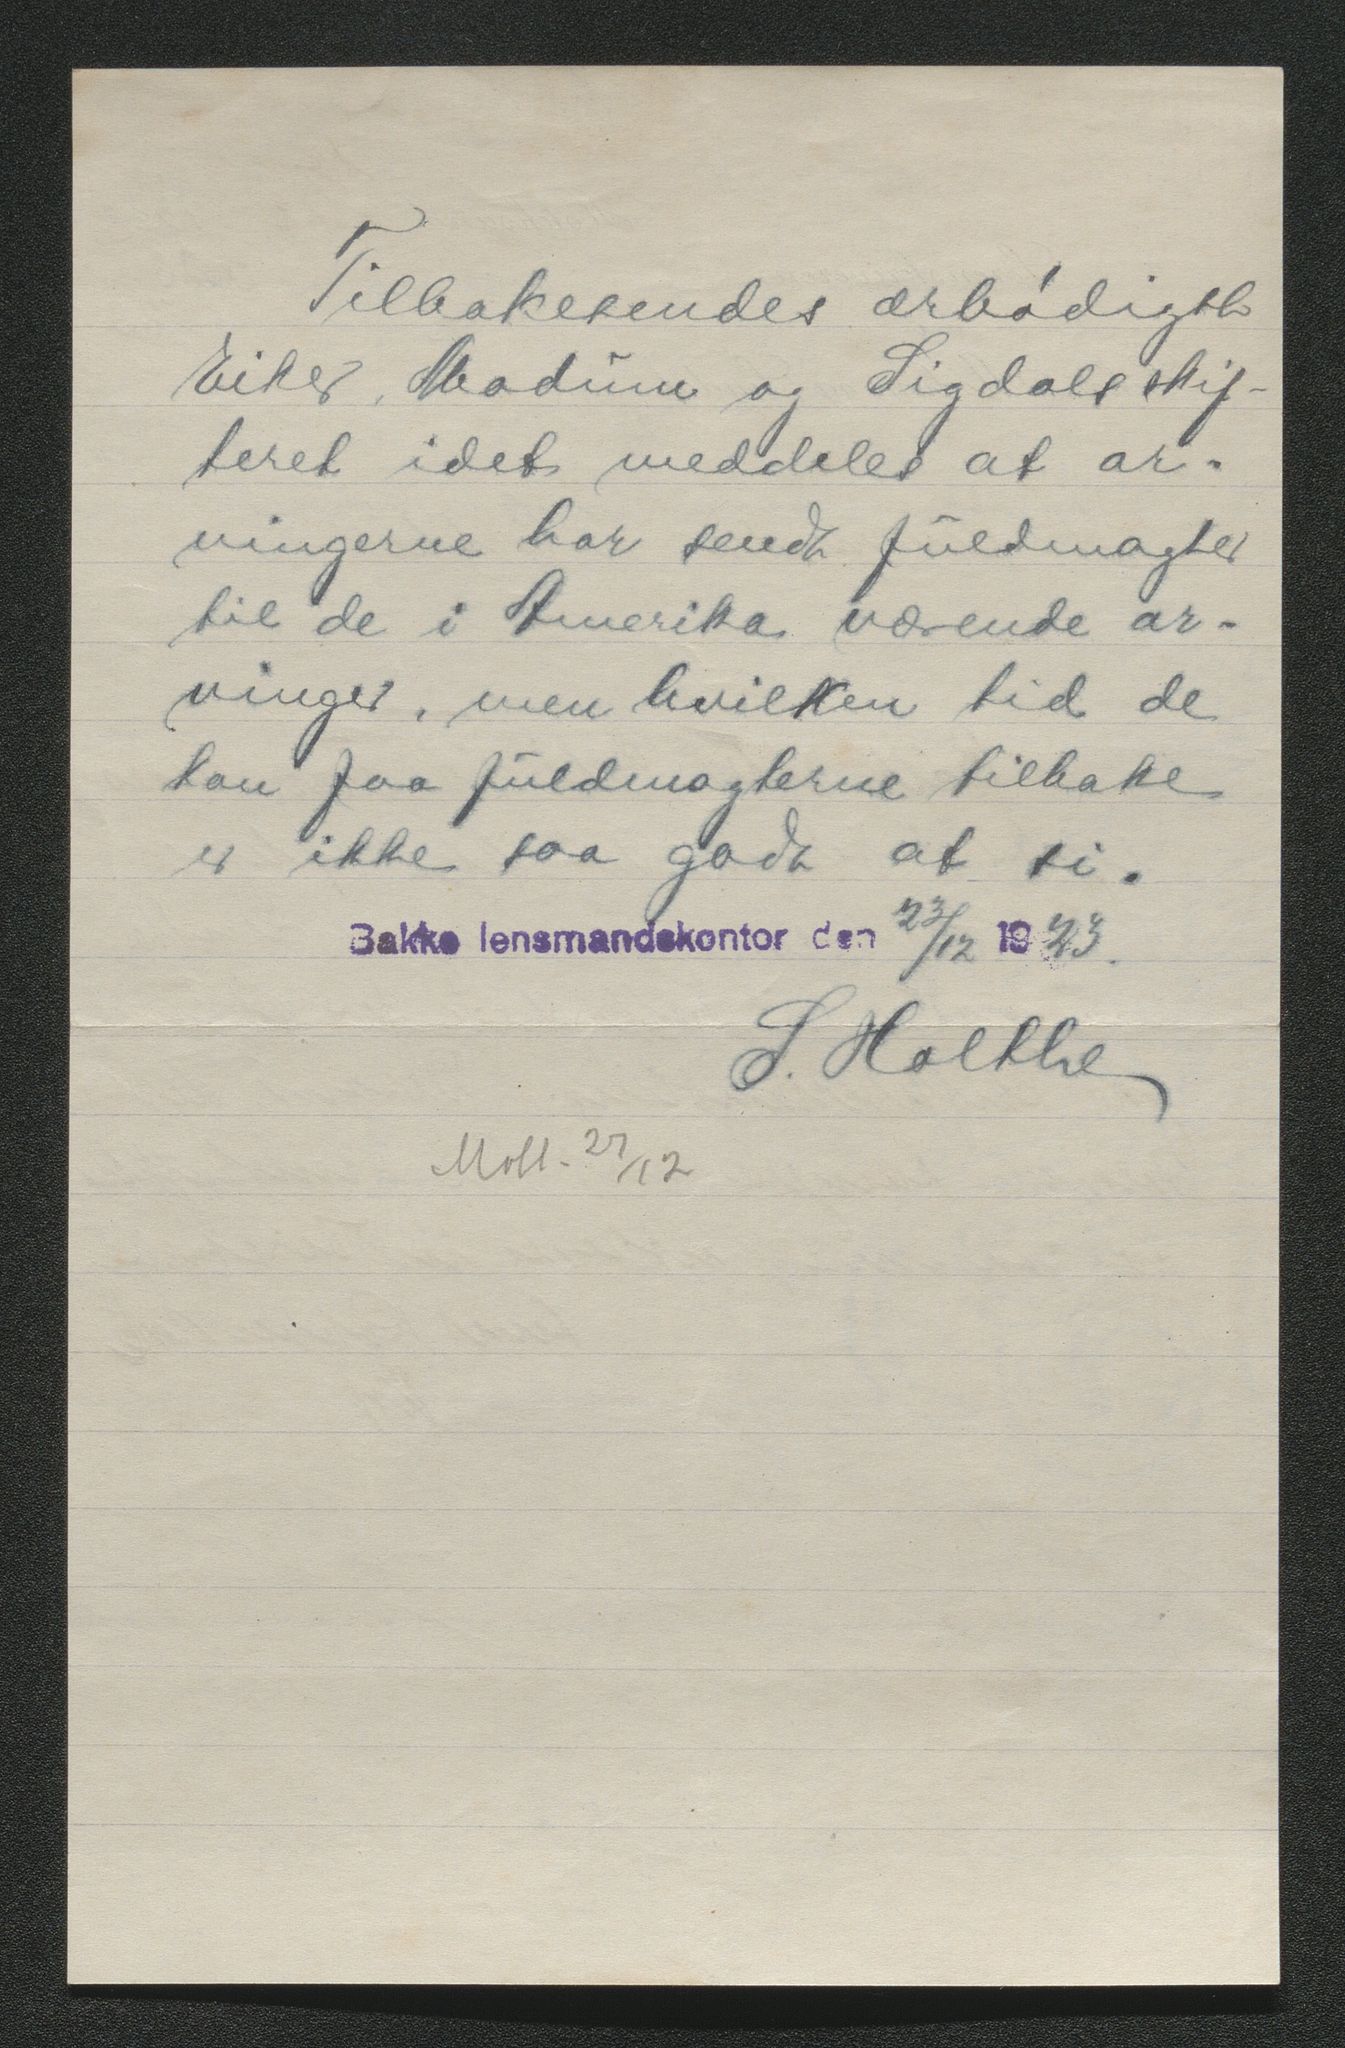 Tilbakesendes ærbødigst
Eiker, Modum og Sigdals skif-
teret idet meddeles at ar-
vingerne har sendt fuldmagter
til de i Amerika værende ar-
vinger, men hvilken tid de
kan faa fuldmagterne tilbake
er ikke saa godt at si.
Bakke lensmandskontor den 23/12 1923.
S. Holthe
Mott. 27/12